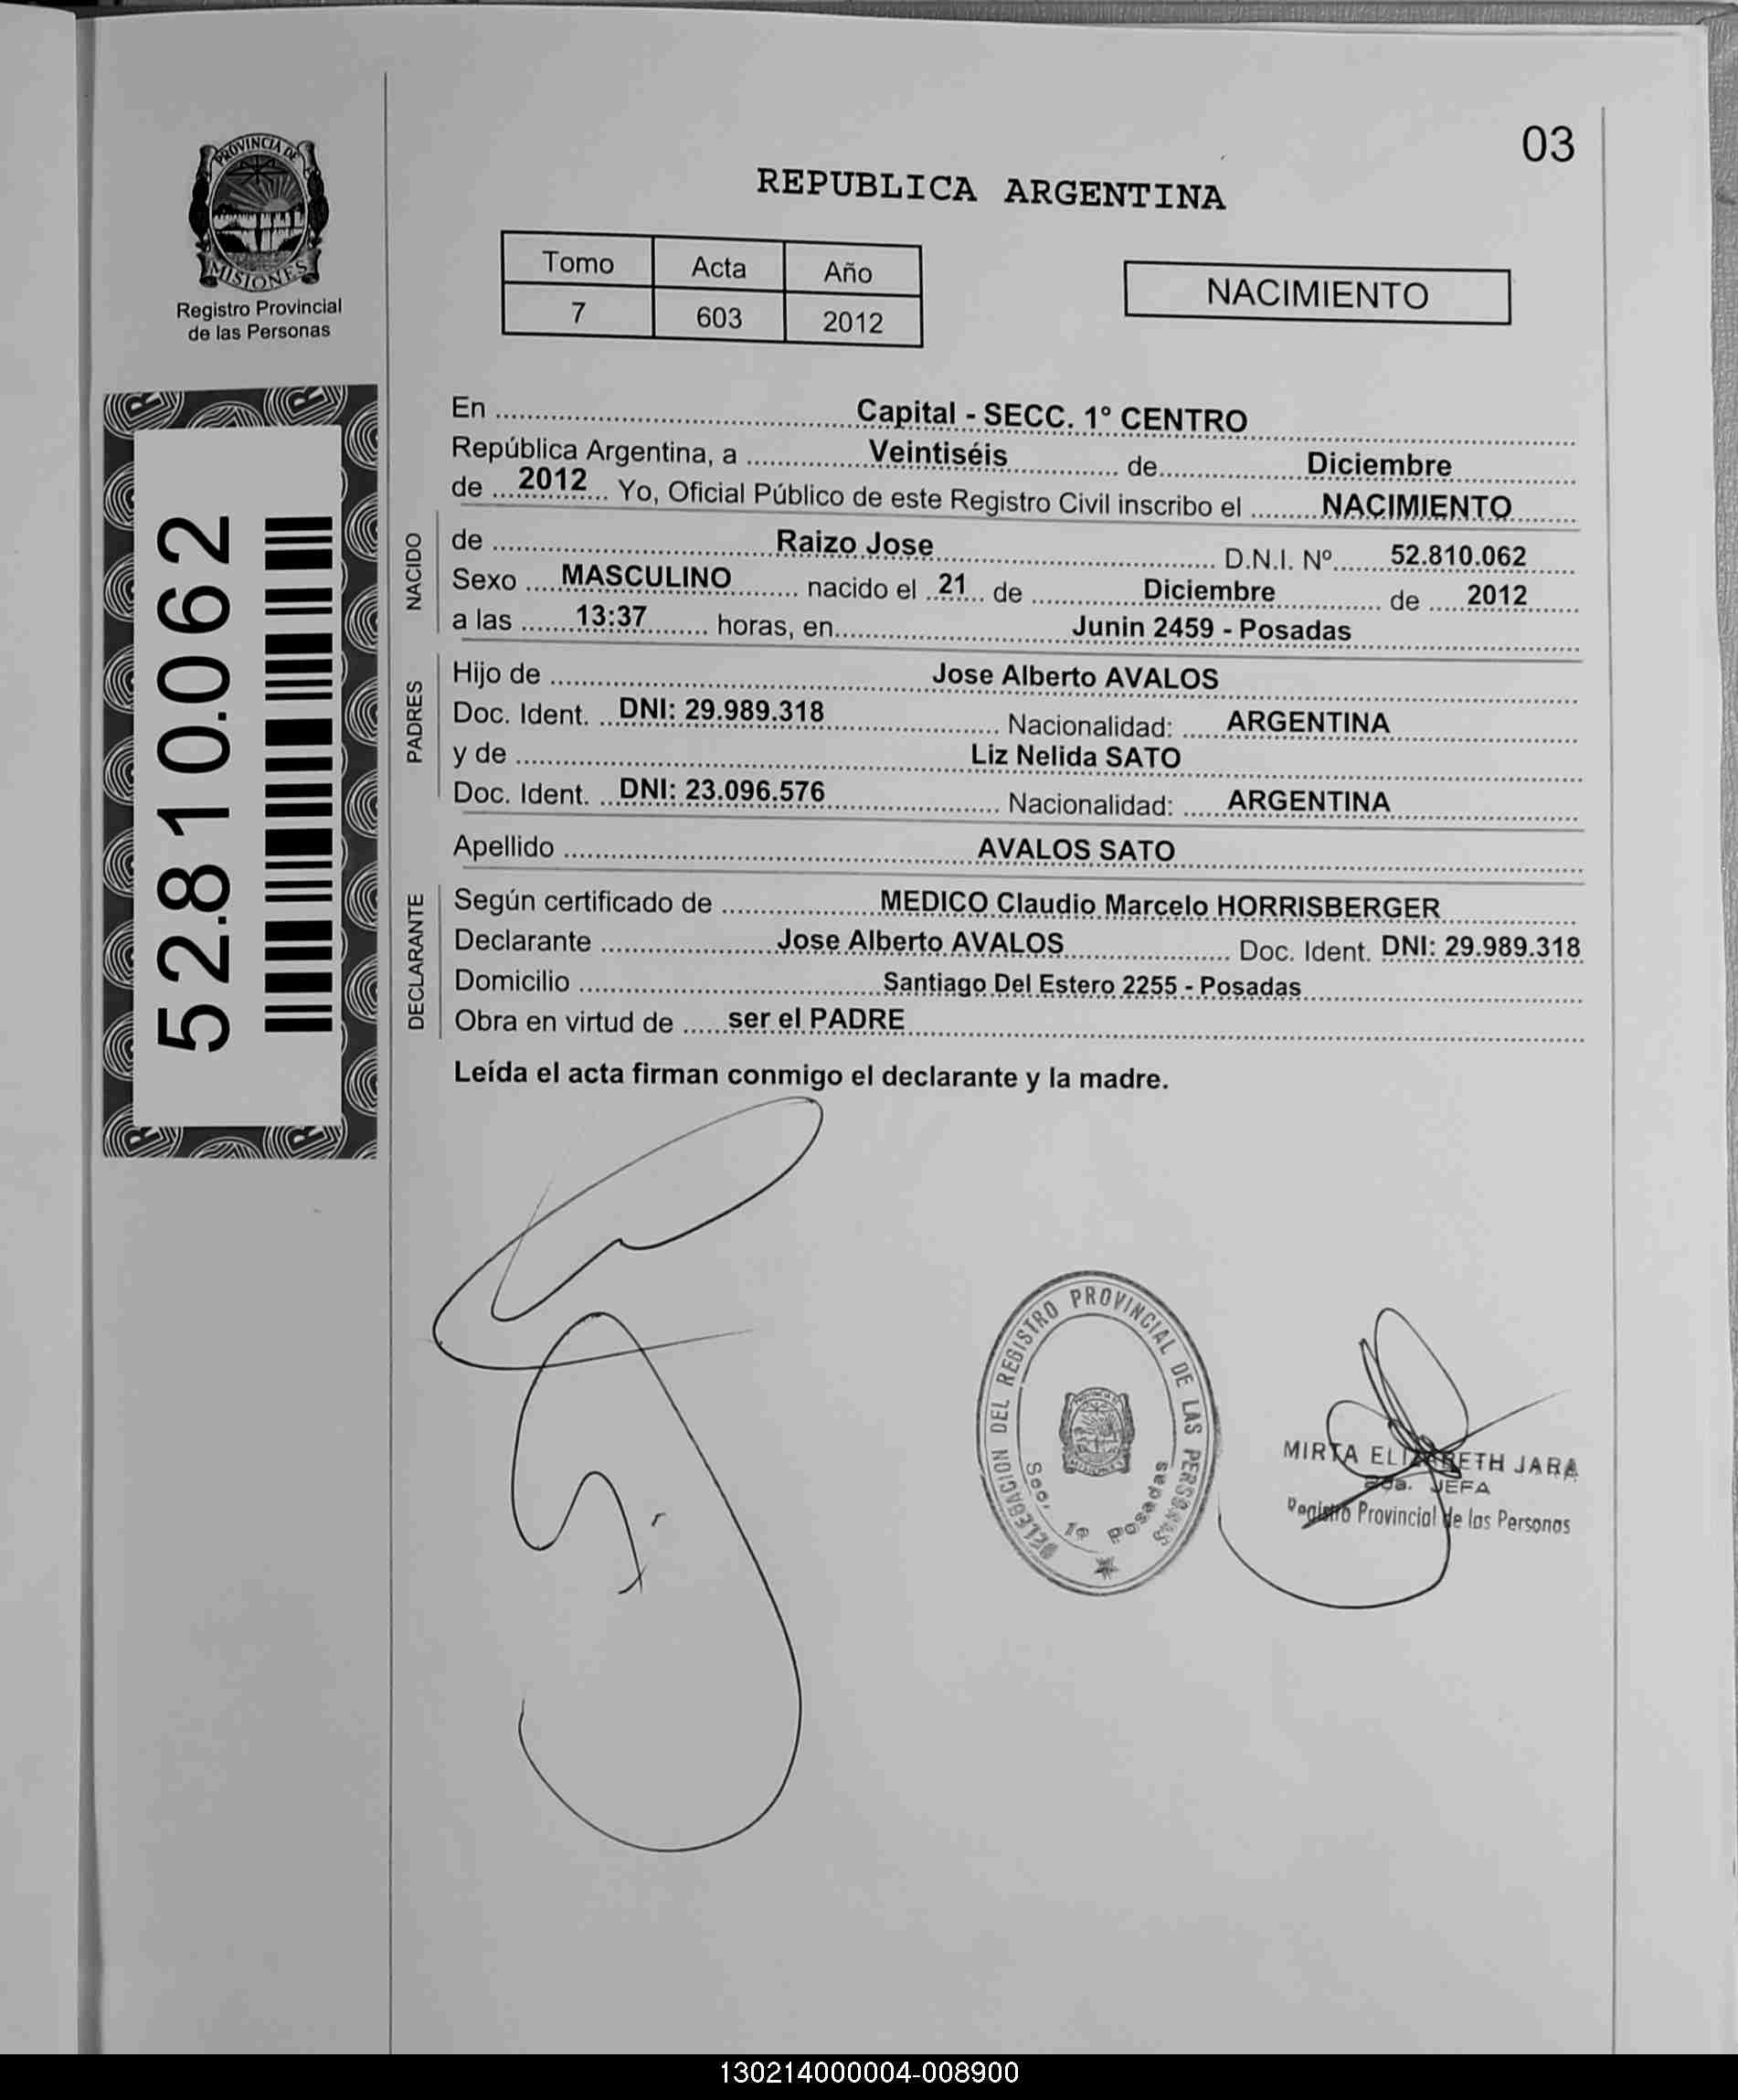 03
PROVINCIA DE
MISIONES
Registro Provincial
de las Personas
REPUBLICA ARGENTINA
Tomo Acta Año
7 603 2012
NACIMIENTO
52.810.062
En Capital - SECC. 1° CENTRO
República Argentina, a Veintiséis de Diciembre
de 2012 Yo, Oficial Público de este Registro Civil inscribo el NACIMIENTO
NACIDO
de Raizo Jose D.N.I. Nº 52.810.062
Sexo MASCULINO nacido el 21 de Diciembre de 2012
a las 13:37 horas, en Junin 2459 - Posadas
PADRES
Hijo de Jose Alberto AVALOS
Doc. Ident. DNI: 29.989.318 Nacionalidad: ARGENTINA
y de Liz Nelida SATO
Doc. Ident. DNI: 23.096.576 Nacionalidad: ARGENTINA
Apellido AVALOS SATO
DECLARANTE
Según certificado de MEDICO Claudio Marcelo HORRISBERGER
Declarante Jose Alberto AVALOS Doc. Ident. DNI: 29.989.318
Domicilio Santiago Del Estero 2255 - Posadas
Obra en virtud de ser el PADRE
Leída el acta firman conmigo el declarante y la madre.
DELEGACION DEL REGISTRO PROVINCIAL DE LAS PERSONAS
Sec. 1ª Posadas
MIRTA ELIZABETH JARA
JEFA
Registro Provincial de las Personas
130214000004-008900